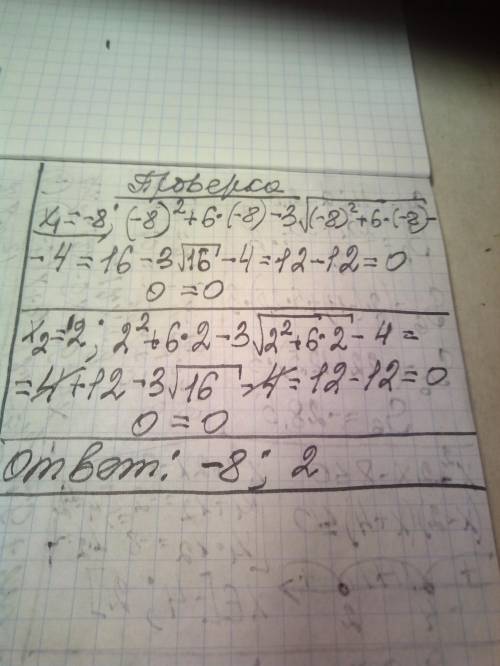 Проверка
x₁=-8; (-8)²+6·(-8)-3√(-8)²+6·(-8)-
-4=16-3√16-4=12-12=0
0=0
x₂=2; 2²+6·2-3√2²+6·2-4=
=4+12-3√16-4=12-12=0
0=0
Ответ: -8; 2